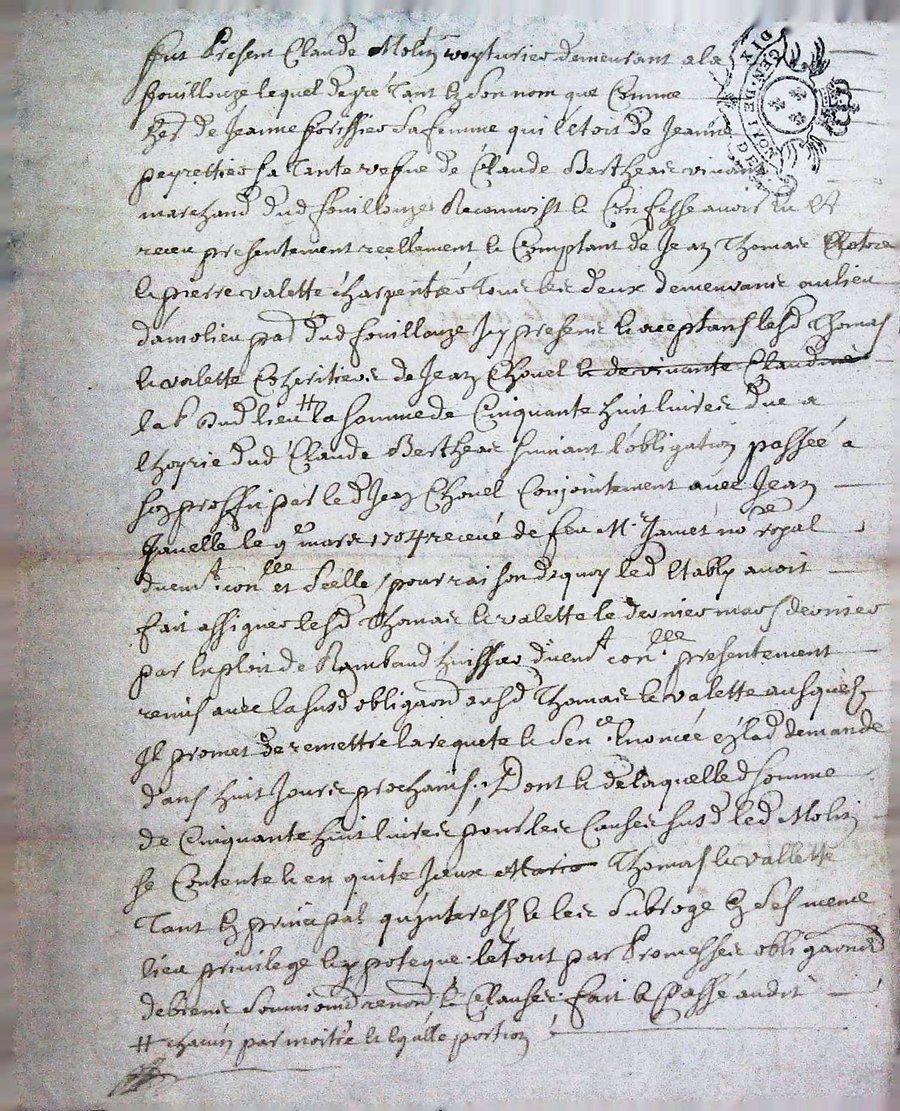 fut Present Claude Molin voyturier demeurant a la
fouillouze lequel de gre Tant En Son nom que Comme
her de Jeanne forissier Sa femme qui l'etoit de Jeanne
peyrettier Sa Tante vefue de Claude Berthear vivant
marchand dud fouillouze Reconnoist & Confesse avoir Eu Et
receu presentement reellement & Comptant de Jean Thomas
& pierre valette charpentier Tous les deux demeurants au lieu
damolieu par dud fouillouze Icy presens & aceptans lesd Thomas
& valette Coheritiers de Jean Chovel & de vivante Claudine
# la somme de Cinquante huit livres due a
lhoyrie dud Claude Berthear Suivant l'obligation passée a
Son proffit par led Jean Chovel Conjointement avec Jean
Javelle le 9e mars 1704 receüe de feu Mr Jamet nore royal
duemt conlle et Scelle / pour raison dequoy led Etably avoit
fait assigner lesd Thomas & valette le dernier mars dernier
par Exploit de Rambaud huissier duemt conlle presentement
remis avec la susd obligaon ausd Thomas & valette ausquels
Il promet de remettre la requete & Sence Enoncée En lad demande
dans huit Jours prochains, Dont & de laquelle d somme
de Cinquante huit livres pour les Causes susd led Molin
Se Contente & en quite Iceux Thomas & vallette
Tant En principal qu'interests & les Subroge En Ses meme
lieu privilege & ypoteque. le tout par Promesses obligaons
de biens Soumions renons & Clauses fait & Passé audit
# chacun par moitié & Egalle portion
DIX
GEN. DE LYON
DEN